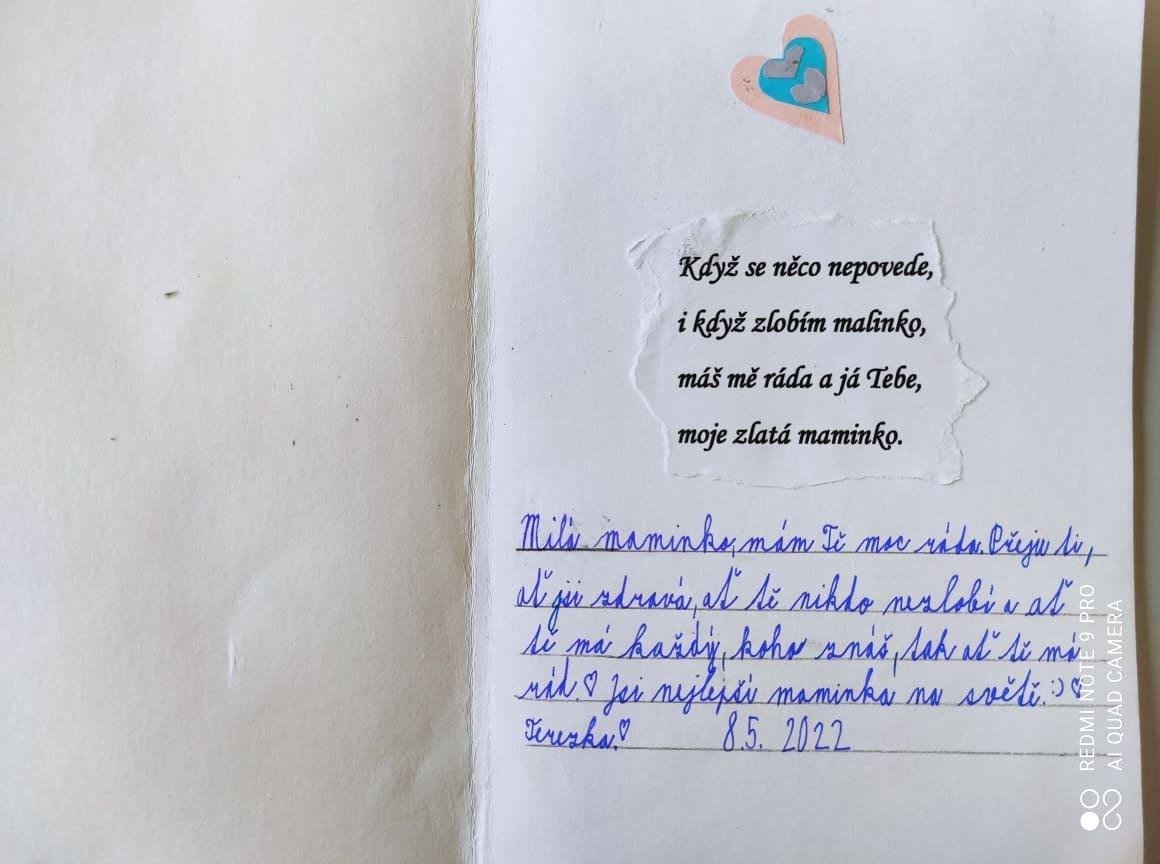 Když se něco nepovede,
i když zlobím malinko,
máš mě ráda a já Tebe,
moje zlatá maminko.
Milá maminko, mám Tě moc ráda. Přeju ti,
ať jsi zdravá, ať tě nikdo nezlobí a ať
tě má každý, koho znáš, tak ať tě má
rád.♡ Jsi nejlepší maminka na světě. :) ♡
Terezka.♡ 8.5. 2022
REDMI NOTE 9 PRO
AI QUAD CAMERA